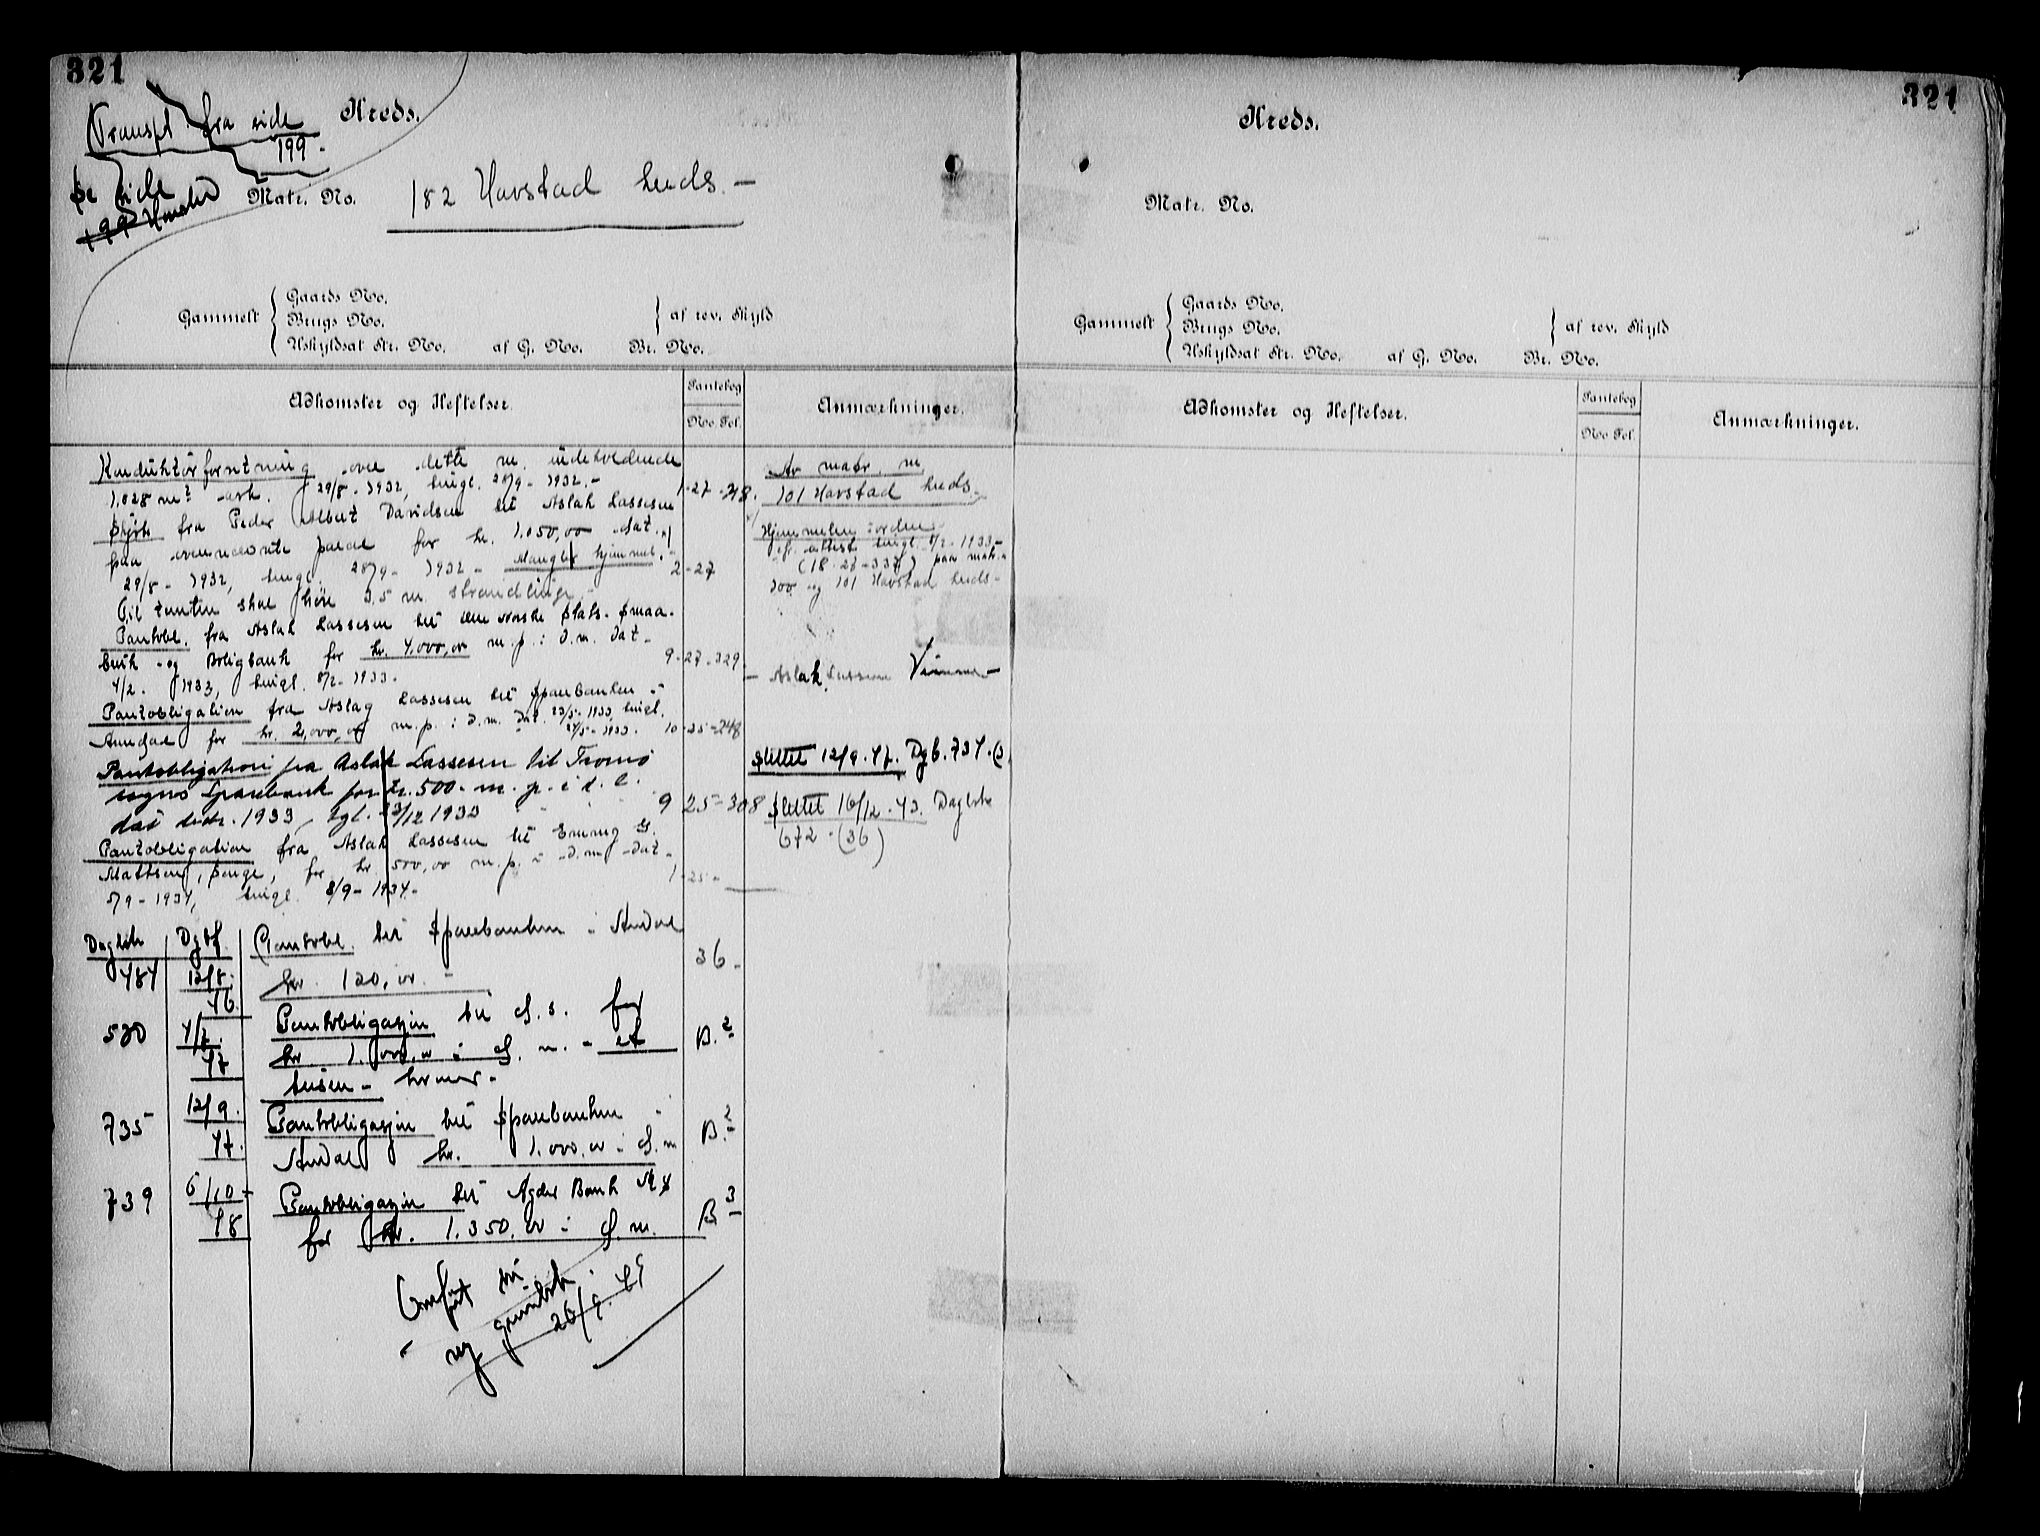 321
Transpt fra side
199.
Kreds.
Se side
199 Havstad
Matr. No. 182 Havstad leds. —
Gammelt
Gaards No.
Brugs No.
Uskyldsat Str. No. af G. No. Br. No.
af rev. Skyld
Adkomster og Heftelser.
Pantebog
No. Fol.
Anmærkninger.
Konduktörforretning over dette m. indeholdende
1.028 m² dat. 29/8 - 1932, tingl. 28/9 - 1932. - 1-27-318.
Skjöte fra Peder Albert Davidsen til Aslak Lassesen
paa ovennevnte parcel for kr. 1.050,00 dat.
29/8 - 1932, tingl. 28/9 - 1932 - Mangler hjemmel. 2-27
Til tomten skal höre 3.5 m. strandlinje.
Pantobl. fra Aslak Lassesen til den norske Stats- Smaa-
bruk- og Boligbank for kr. 4.000,00 m.p. i d.m. dat.
4/2. 1933, tingl. 8/2 - 1933. 9-27-329.
Pantobligation fra Aslag Lassesen til Sparebanken i
Arendal for kr. 2.000,00 m.p. i d.m. dat. 23/5 - 1933, tingl.
27/5 - 1933. 10-25-248
Pantobligation fra Aslak Lassesen til Tromö
sogns Sparebank for kr. 500.- m.p. i d. e.
dat. decbr. 1933, tgl. 23/12 1933 9 25-308
Pantobligation fra Aslak Lassesen til Emmy G.
Mattsen, Songe, for kr. 500,00 m.p. i d.m. dat.
5/9 - 1934, tingl. 8/9 - 1934. 1-25-
Av matr. m.
101 Havstad leds.
Hjemmelen i orden
cf. attest tingl. 8/2 - 1933 -
(18-26-337) paa matr.
100 og 101 Havstad leds -
Aslak Lassesen
Slettet 12/9.47. Dgb. 734.
Slettet 16/12.43. Dagbk
672 - (36)
Dagbk Dgbf. Pantobl. til Sparebanken i Arendal
484 12/8. 46. kr. 120,00. - 36.
530 4/7. 47 Pantobligasjon til d.s. for
kr. 1.000.00 i d. m. - et
tusen - kroner. - B.2
735 12/9. 47. Pantobligasjon til Sparebanken i
Arendal kr. 1.000.00 i d.m B.2
739 6/10 - 48 Pantobligasjon til Agder Bank A/S
for kr. 1.350.00 i d.m. B.3
Omfört til
ny grunnbok
26/9.49
321
Kreds.
Matr. No.
Gammelt
Gaards No.
Brugs No.
Uskyldsat Str. No. af G. No. Br. No.
af rev. Skyld
Adkomster og Heftelser.
Pantebog
No. Fol.
Anmærkninger.